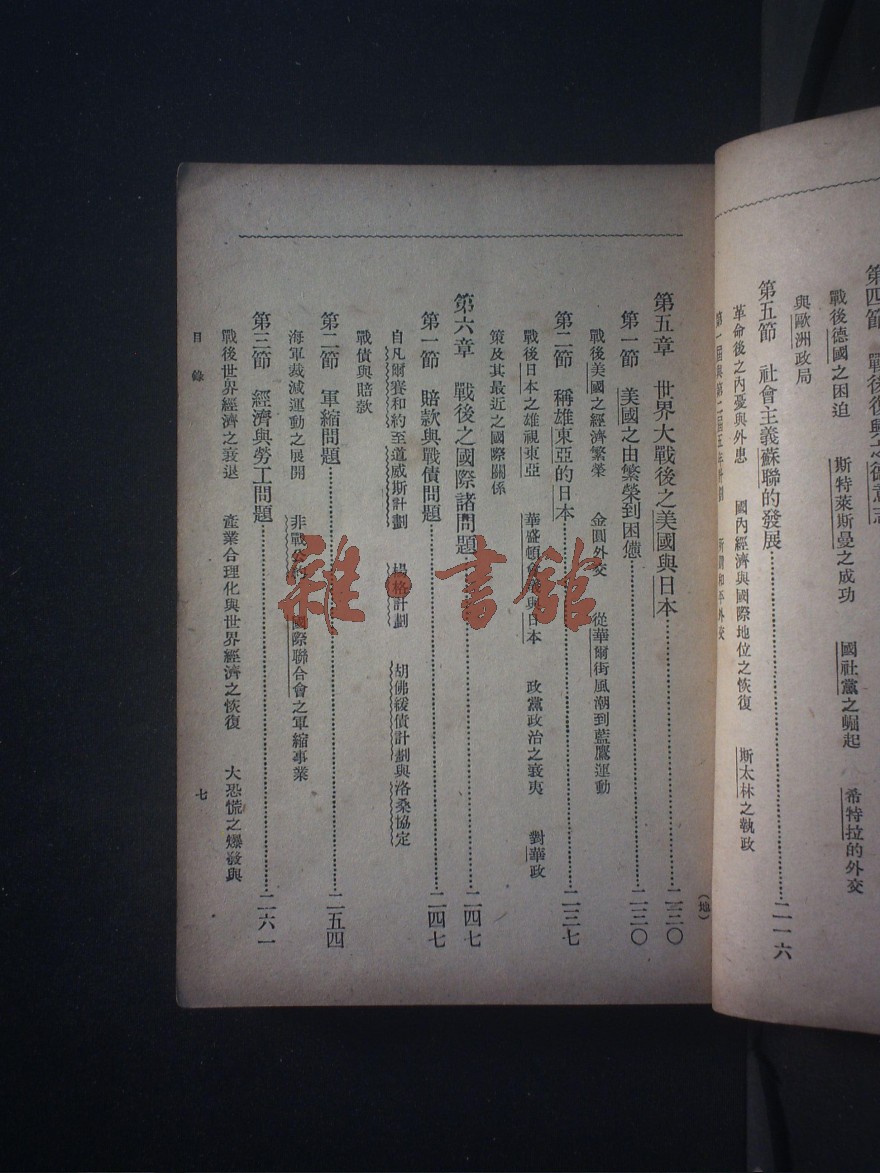 第四節　戰後復興之德意志
戰後德國之困迫　斯特萊斯曼之成功　國社黨之崛起　希特拉的外交
與歐洲政局
第五節　社會主義蘇聯的發展 二一六
革命後之內憂與外患　國內經濟與國際地位之恢復　斯太林之執政
第一屆與第二屆五年計劃　所謂和平外交
（地）
第五章　世界大戰後之美國與日本 二三〇
第一節　美國之由繁榮到困憊 二三〇
戰後美國之經濟繁榮　金圓外交　從華爾街風潮到藍鷹運動
第二節　稱雄東亞的日本 二三七
戰後日本之雄視東亞　華盛頓會議與日本　政黨政治之衰夷　對華政
策及其最近之國際關係
第六章　戰後之國際諸問題 二四七
第一節　賠款與戰債問題 二四七
自凡爾賽和約至道威斯計劃　楊格計劃　胡佛緩債計劃與洛桑協定
戰債與賠款
第二節　軍縮問題 二五四
海軍裁減運動之展開　非戰公約　國際聯合會之軍縮事業
第三節　經濟與勞工問題 二六一
戰後世界經濟之衰退　產業合理化與世界經濟之恢復　大恐慌之爆發與
目錄
七
雜·書館